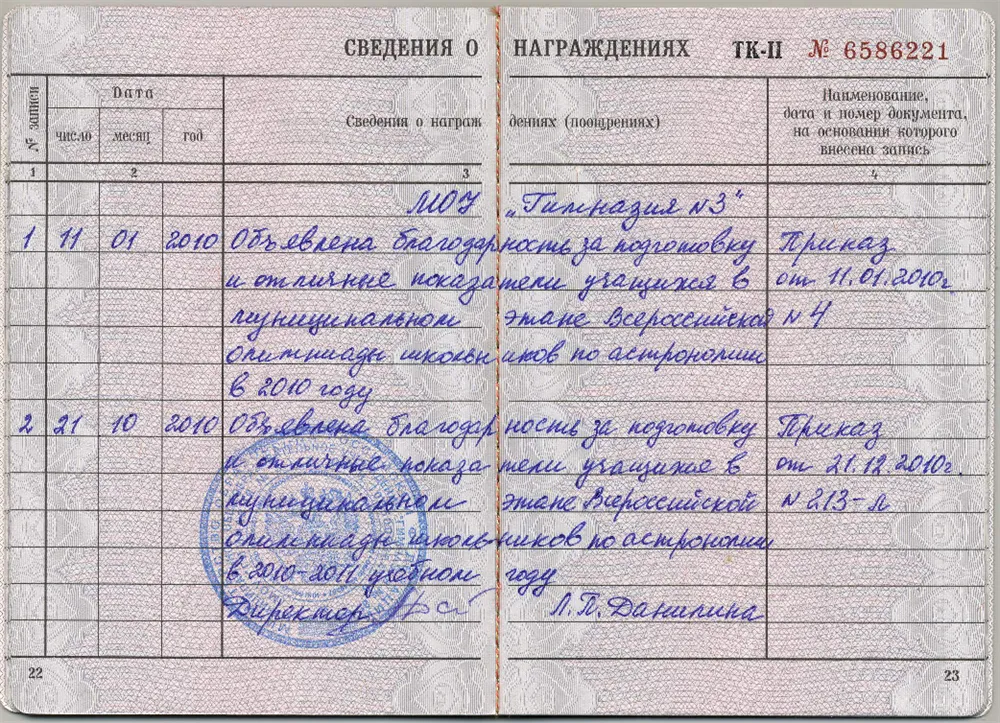 СВЕДЕНИЯ О НАГРАЖДЕНИЯХ ТК-II № 6586221
№ записи
Дата
число месяц год
Сведения о награждениях (поощрениях)
Наименование,
дата и номер документа,
на основании которого
внесена запись
1 2 3 4
МОУ „Гимназия №3“
1 11 01 2010 Объявлена благодарность за подготовку Приказ
и отличные показатели учащихся в от 11.01.2010г
муниципальном этапе Всероссийской N 4
олимпиады школьников по астрономии
в 2010 году
2 21 10 2010 Объявлена благодарность за подготовку Приказ
и отличные показатели учащихся в от 21.12.2010г.
муниципальном этапе Всероссийской N 213-л
олимпиады школьников по астрономии
в 2010-2011 учебном году
Директор Л.П. Данилина
22 23